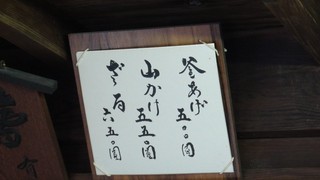 釜あげ 五〇〇円
山かけ 五五〇円
ざる 六五〇円